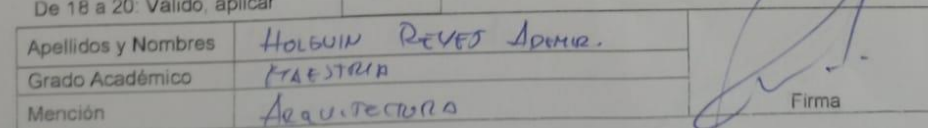 De 18 a 20: Válido, aplicar
Apellidos y Nombres HOLGUIN REYES ADEMIR.
Grado Académico MAESTRIA
Mención ARQUITECTURA
Firma